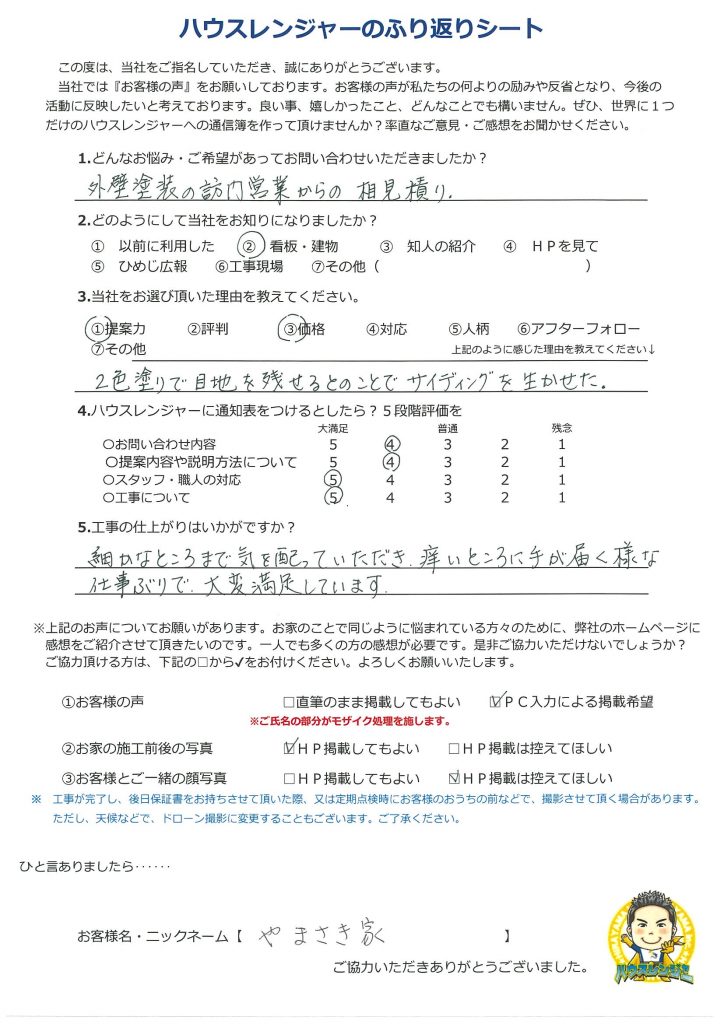 ハウスレンジャーのふり返りシート
この度は、当社をご指名していただき、誠にありがとうございます。
当社では『お客様の声』をお願いしております。お客様の声が私たちの何よりの励みや反省となり、今後の
活動に反映したいと考えております。良い事、嬉しかったこと、どんなことでも構いません。ぜひ、世界に１つ
だけのハウスレンジャーへの通信簿を作って頂けませんか？率直なご意見・ご感想をお聞かせください。
1.どんなお悩み・ご希望があってお問い合わせいただきましたか？
外壁塗装の訪門営業からの 相見積り.
2.どのようにして当社をお知りになりましたか？
① 以前に利用した ② 看板・建物 ③ 知人の紹介 ④ ＨＰを見て
⑤ ひめじ広報 ⑥工事現場 ⑦その他（ ）
3.当社をお選び頂いた理由を教えてください。
①提案力 ②評判 ③価格 ④対応 ⑤人柄 ⑥アフターフォロー
⑦その他 上記のように感じた理由を教えてください↓
2色塗りで目地を残せるとのことでサイディングを生かせた.
4.ハウスレンジャーに通知表をつけるとしたら？５段階評価を
大満足 普通 残念
○お問い合わせ内容 5 4 3 2 1
○提案内容や説明方法について 5 4 3 2 1
○スタッフ・職人の対応 5 4 3 2 1
○工事について 5 4 3 2 1
5.工事の仕上がりはいかがですか？
細かなところまで気を配っていただき、痒いところに手が届く様な
仕事ぶりで、大変満足しています.
※上記のお声についてお願いがあります。お家のことで同じように悩まれている方々のために、弊社のホームページに
感想をご紹介させて頂きたいのです。一人でも多くの方の感想が必要です。是非ご協力いただけないでしょうか？
ご協力頂ける方は、下記の□から✓をお付けください。よろしくお願いいたします。
①お客様の声 □直筆のまま掲載してもよい ☑ＰＣ入力による掲載希望
※ご氏名の部分がモザイク処理を施します。
②お家の施工前後の写真 ☑ＨＰ掲載してもよい □ＨＰ掲載は控えてほしい
③お客様とご一緒の顔写真 □ＨＰ掲載してもよい ☑ＨＰ掲載は控えてほしい
※ 工事が完了し、後日保証書をお持ちさせて頂いた際、又は定期点検時にお客様のおうちの前などで、撮影させて頂く場合があります。
ただし、天候などで、ドローン撮影に変更することもございます。ご了承ください。
ひと言ありましたら‥‥‥
お客様名・ニックネーム【 やまさき家 】
ご協力いただきありがとうございました。
ハウスレンジャー